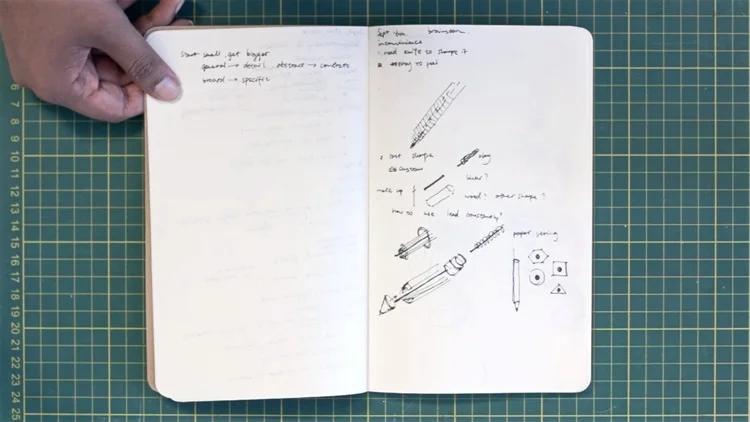 start small, get bigger
general → detail, abstract → concrete
broad → specific
brainstorm
inconvenience
· need knife to sharpen it
to peel
shape
custom
clay
make up
wood? other shape?
how to use lead constantly?
paper
6
7
8
9
10
11
12
13
14
15
16
17
18
19
20
21
22
23
24
25